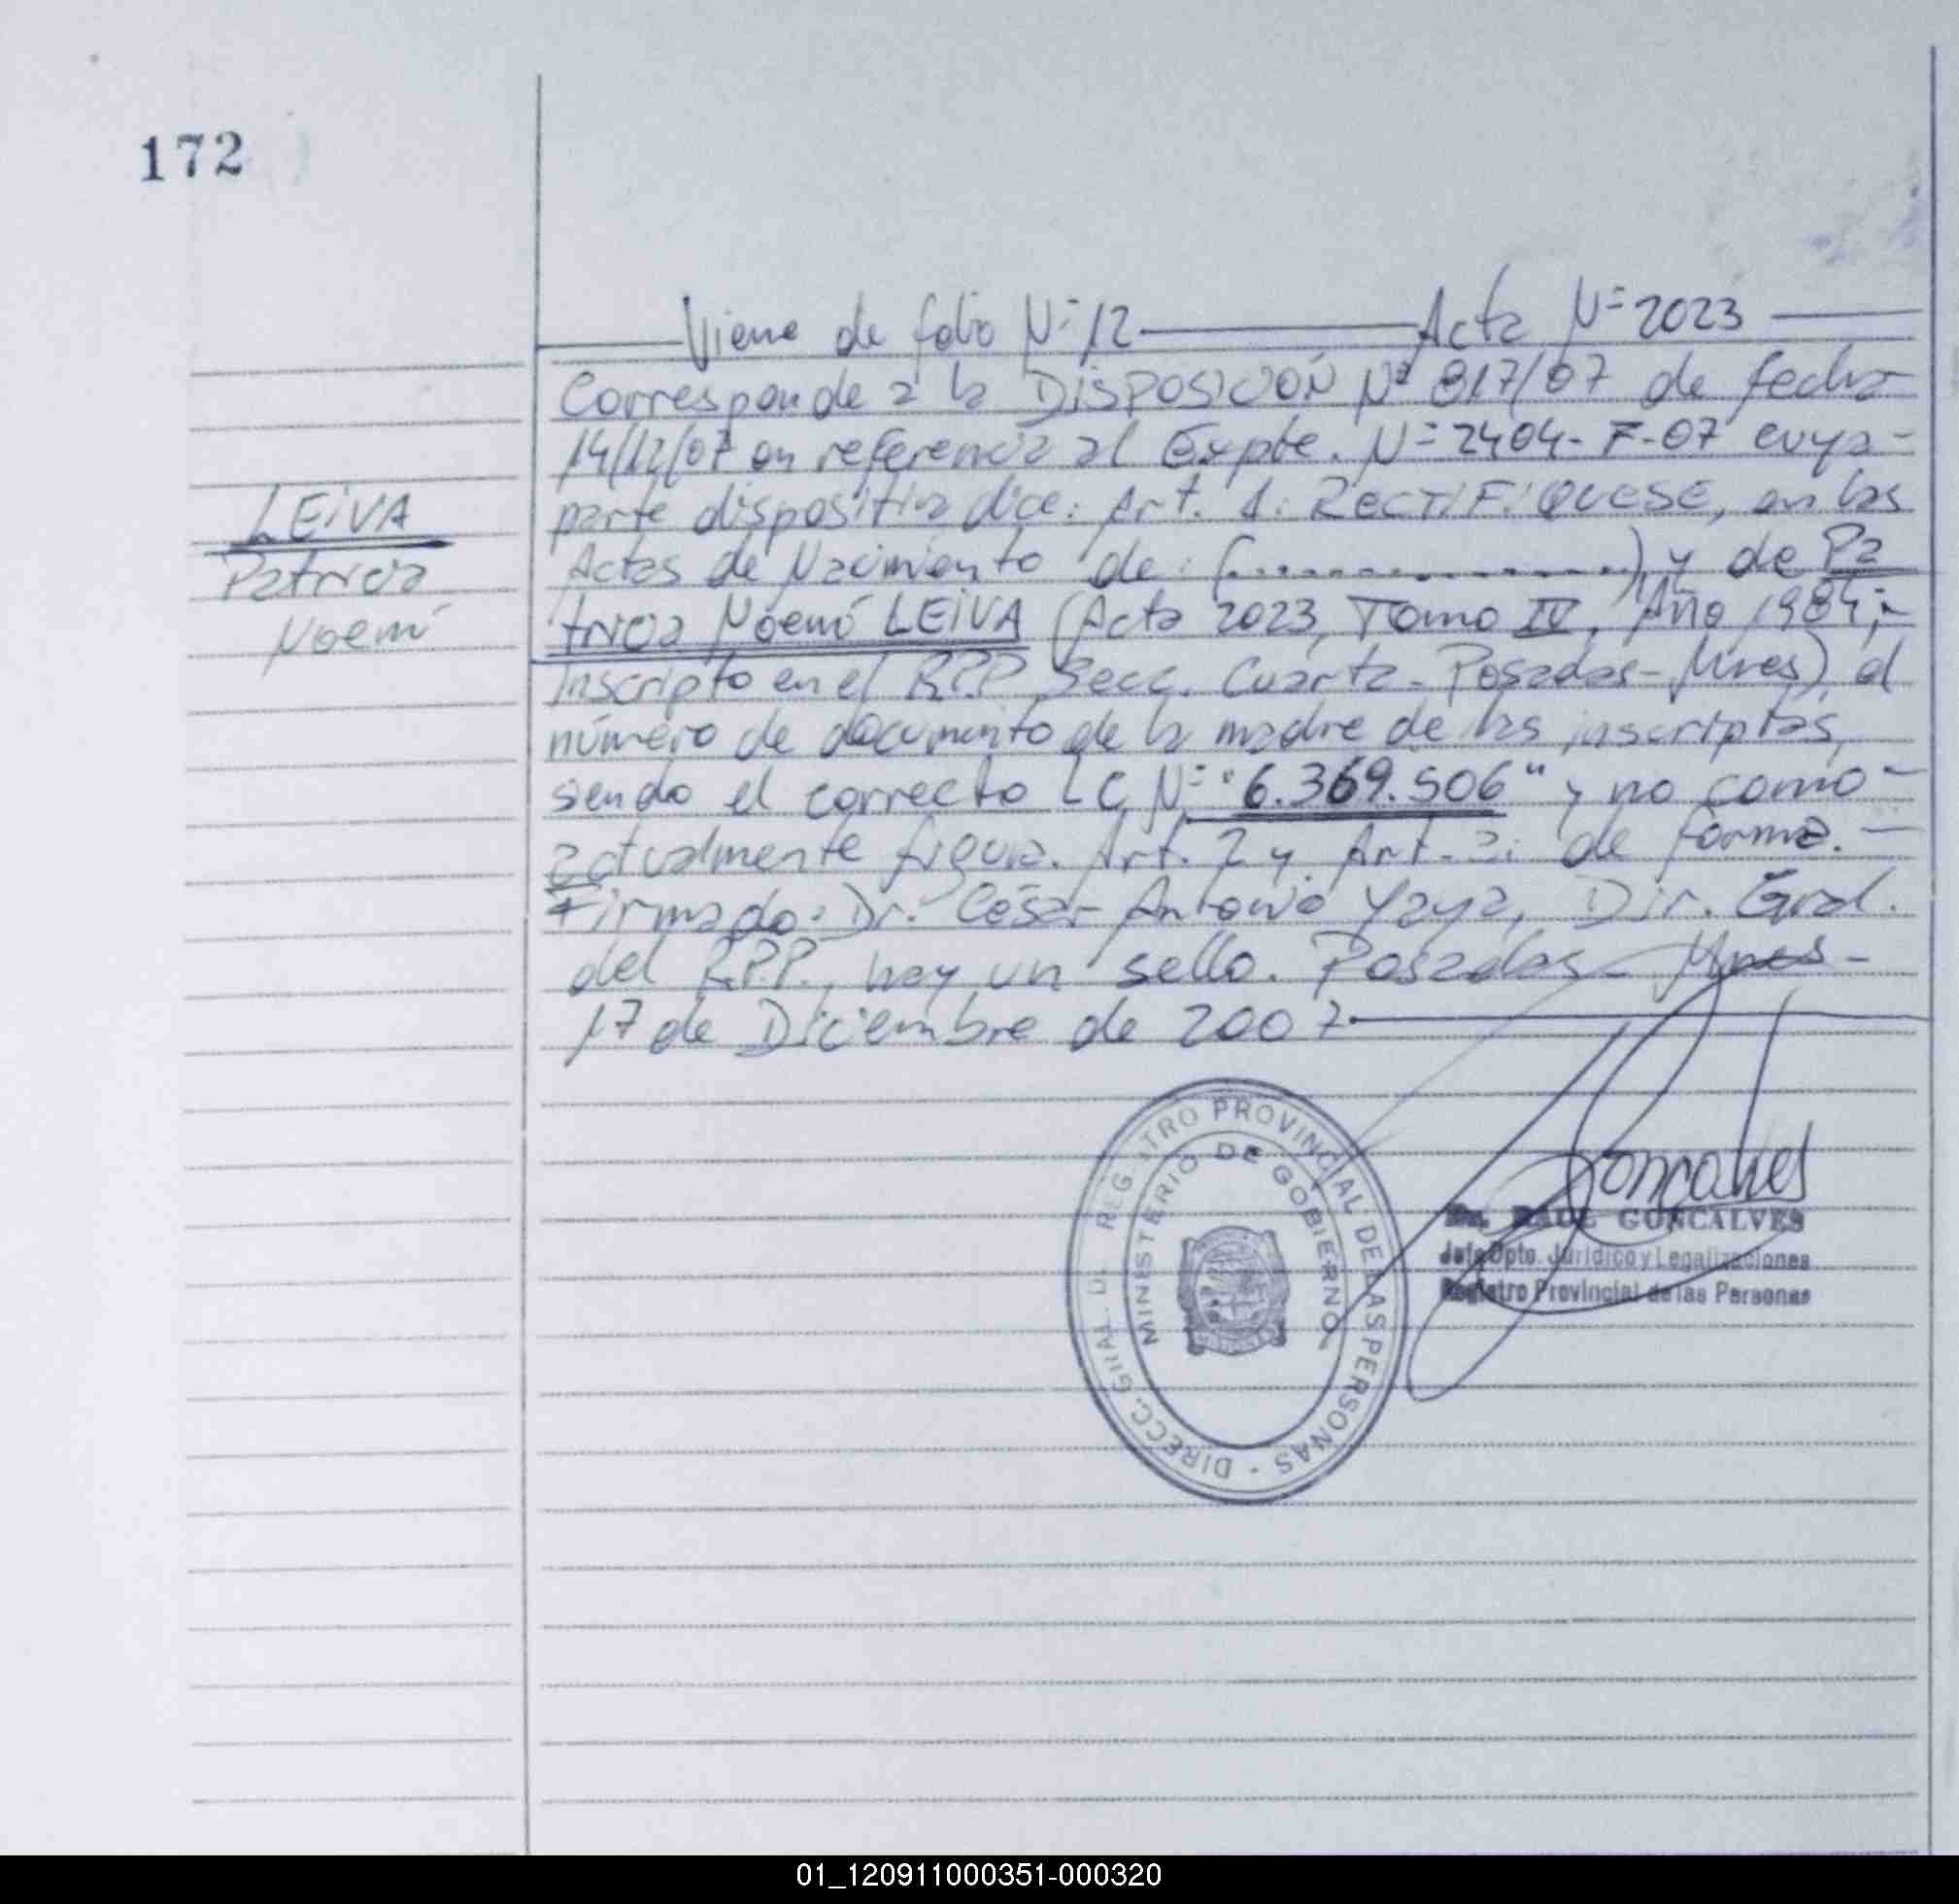 172
Viene de folio Nº 12 — Acta Nº 2023 —
Corresponde a la DISPOSICIÓN Nº 817/07 de fecha
14/12/07 en referencia al Expte. Nº 2404-F-07 cuya-
parte dispositiva dice: Art. 1: RECTIFIQUESE, en las
Actas de Nacimiento de: (..................), y de Pa
tricia Noemí LEIVA (Acta 2023, Tomo IV, Año 1984,-
Inscripto en el R.P.P. Secc. Cuarta - Posadas - Mnes), el
número de documento de la madre de las inscriptas,
siendo el correcto LC Nº "6.369.506" y no como-
actualmente figura. Art. 2 y Art. 3: de forma. —
Firmado: Dr. César Antonio Yaya, Dir. Gral.
del R.P.P., hay un sello. Posadas - Mnes -
17 de Diciembre de 2007 —
LEIVA
Patricia
Noemí
DIRECC. GRAL. DEL REGISTRO PROVINCIAL DE LAS PERSONAS -
MINISTERIO DE GOBIERNO
Goncalves
Dr. RAUL GONCALVES
Jefe Dpto. Jurídico y Legalizaciones
Registro Provincial de las Personas
01_120911000351-000320